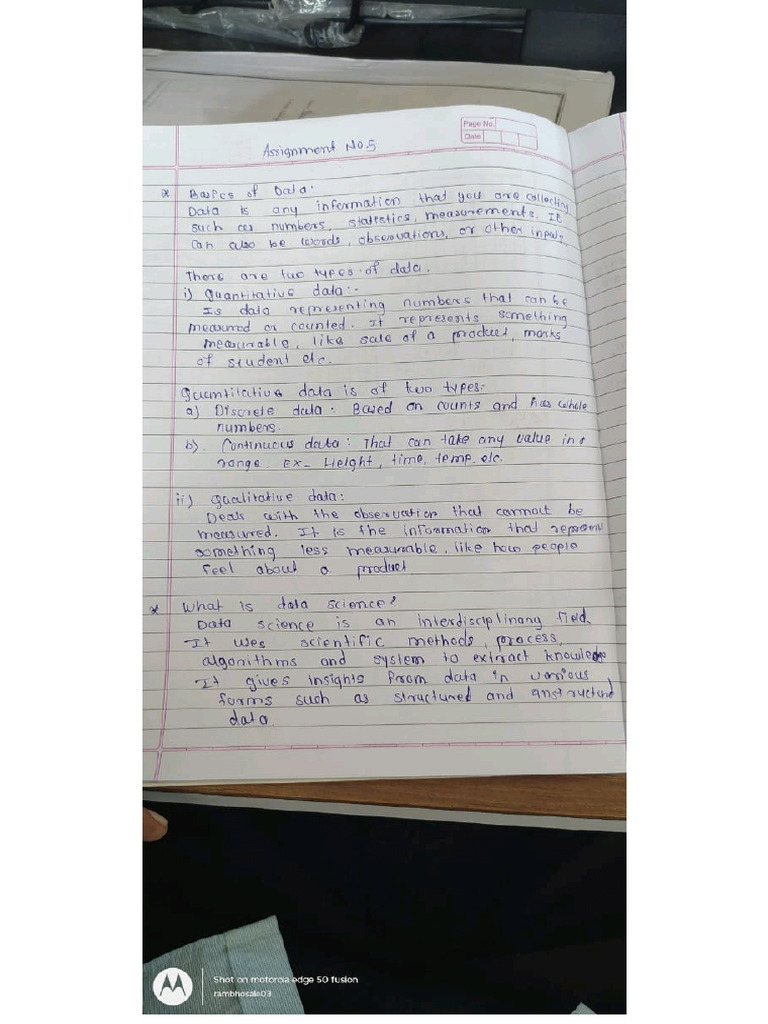 Page No.
Date
Assignment No.5
* Basics of Data:
Data is any information that you are collecting
such as numbers, statistics, measurements. It
can also be words, observations, or other inputs.
There are two types of data.
i) Quantitative data:-
Is data representing numbers that can be
measured or counted. It represents something
measurable, like sale of a product, marks
of student etc.
Quantitative data is of two types:
a) Discrete data: Based on counts and has whole
numbers.
b). Continuous data: That can take any value in a
range. Ex- Height, time, temp. etc.
ii) Qualitative data:
Deals with the observation that cannout be
measured. It is the information that represent
something less measurable, like how people
feel about a product
* What is data science?
Data science is an interdisciplinary field.
It uses scientific methods, process,
algorithms and system to extract knowledge
It gives insights from data in various
forms such as structured and unstructured
data
Shot on motorola edge 50 fusion
rambhosale03